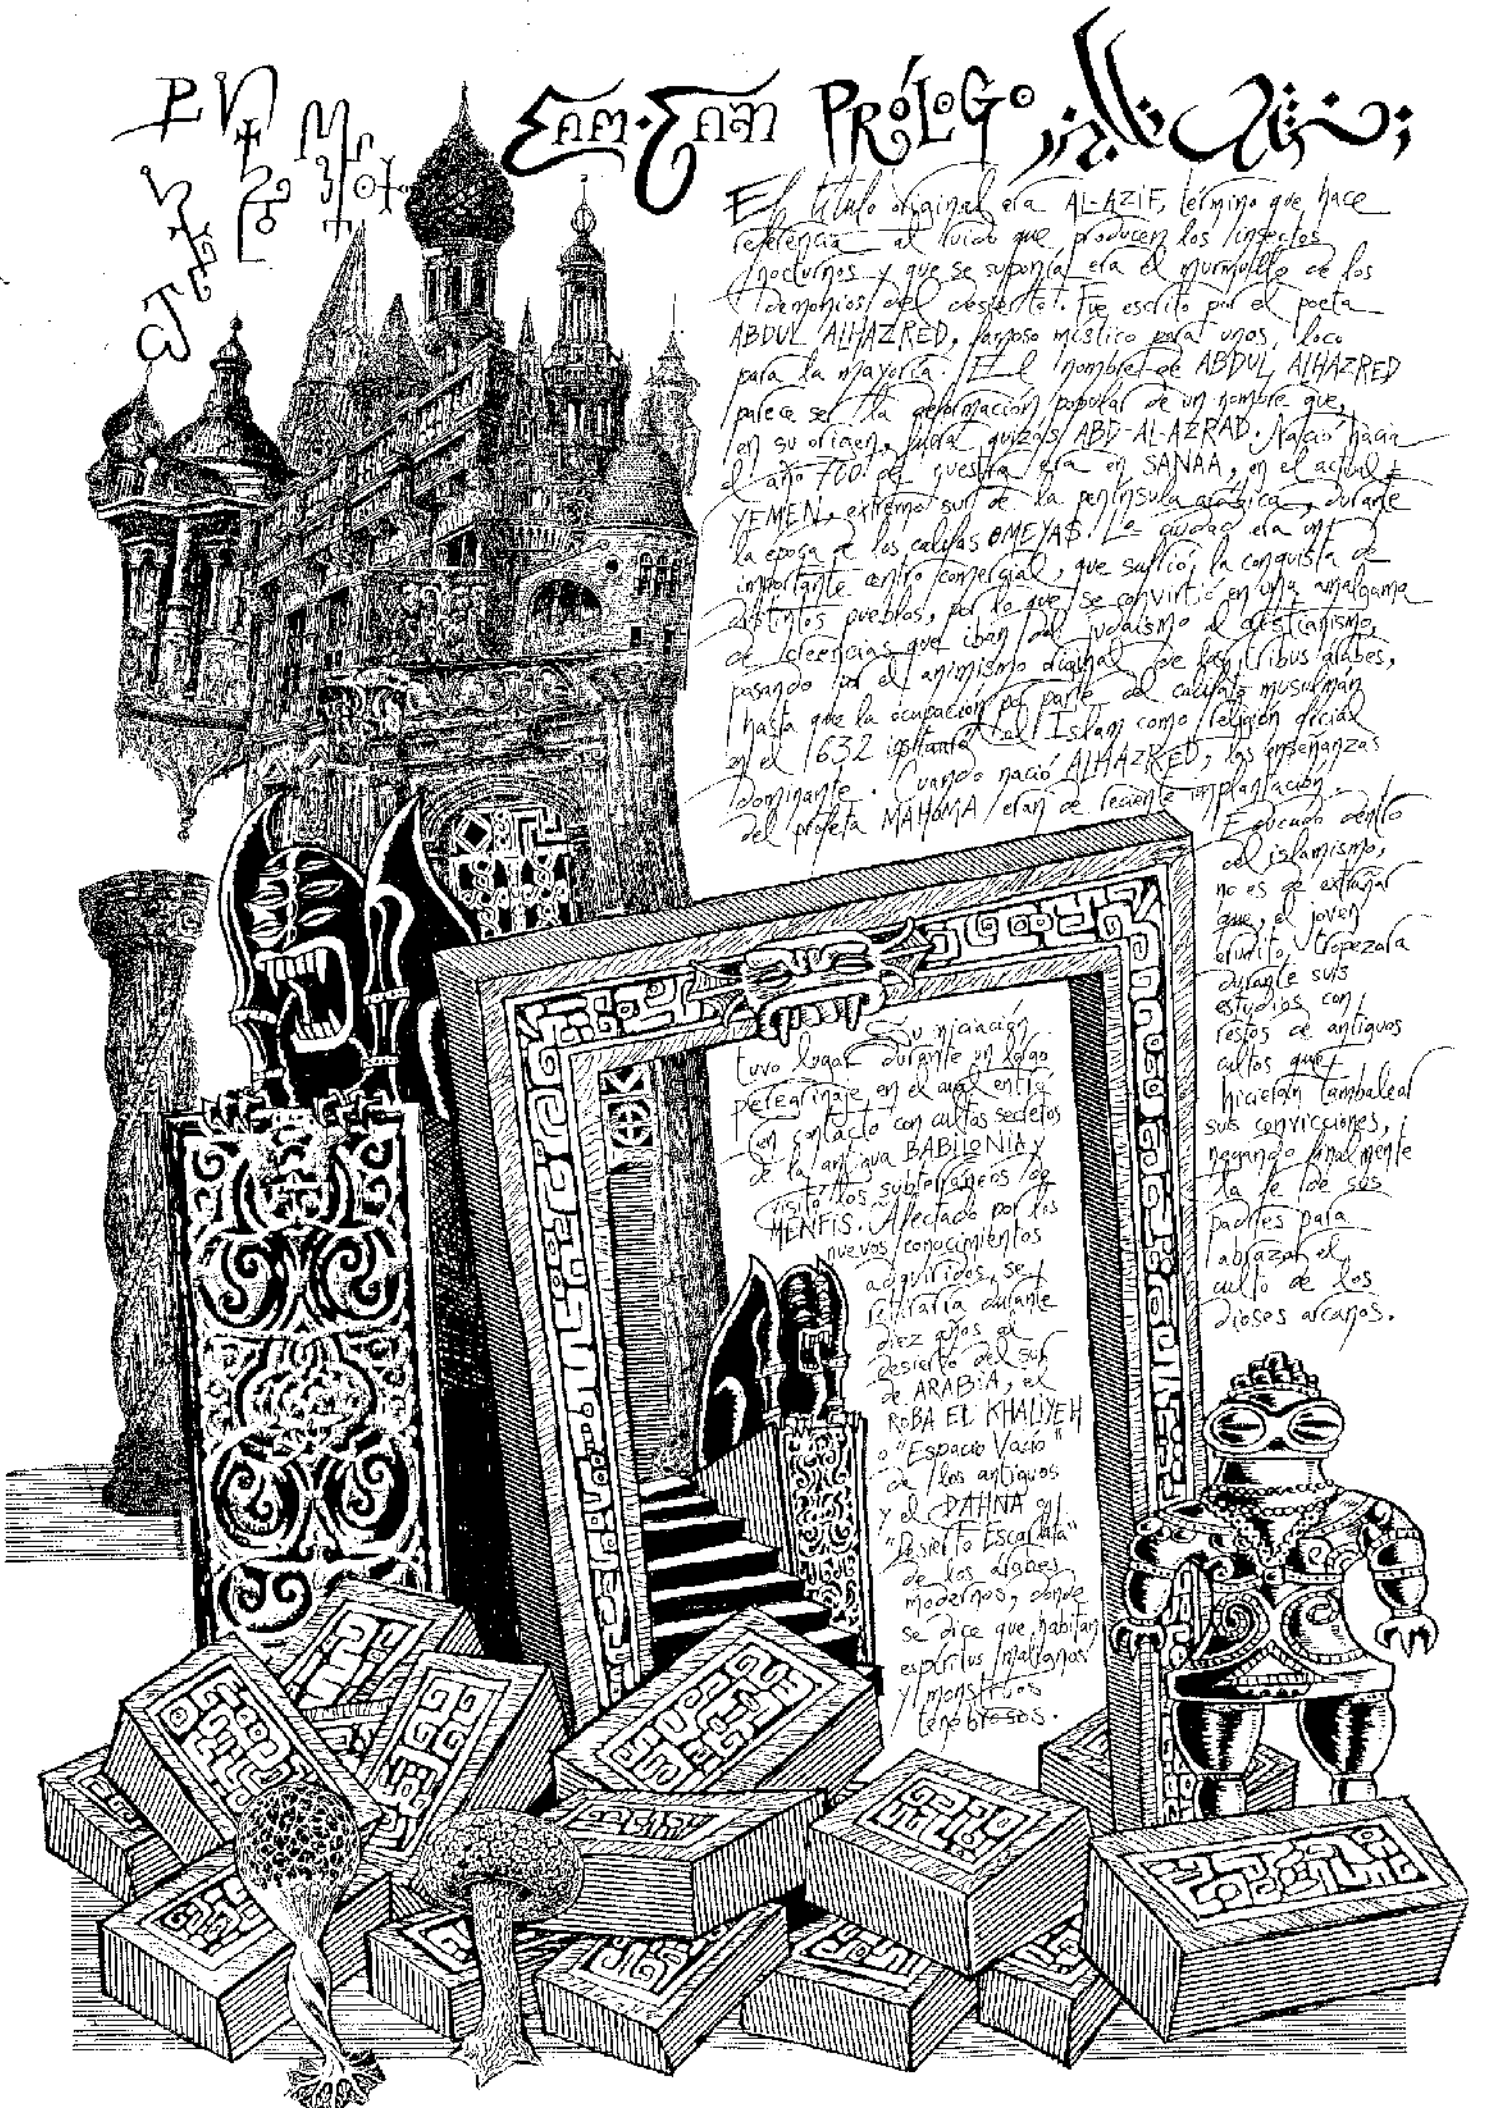 PRÓLOGO
El título original era AL-AZIF, término que hace
referencia al ruido que producen los insectos
nocturnos y que se suponía era el murmullo de los
demonios del desierto. Fue escrito por el poeta
ABDUL ALHAZRED, famoso místico para unos, loco
para la mayoría. El nombre de ABDUL ALHAZRED
parece ser la deformación popular de un nombre que,
en su origen, fuera quizás ABD-AL-AZRAD. Nació hacia
el año 700 de nuestra era en SANAA, en el actual
YEMEN, extremo sur de la península arábiga, durante
la época de los califas OMEYAS. La ciudad era un
importante centro comercial, que sufrió la conquista de
distintos pueblos, por lo que se convirtió en una amalgama
de creencias que iban del judaísmo al cristianismo,
pasando por el animismo original de las tribus árabes,
hasta que la ocupación por parte del califato musulmán
en el 632 instauró el Islam como religión oficial
dominante. Cuando nació ALHAZRED, las enseñanzas
del profeta MAHOMA eran de reciente implantación.
Educado dentro
del islamismo,
no es de extrañar
que, el joven
erudito, tropezara
durante sus
estudios con
restos de antiguos
cultos que
hicieran tambalear
sus convicciones,
negando finalmente
la fe de sus
padres para
abrazar el
culto de los
dioses arcanos.
Su iniciación
tuvo lugar durante un largo
peregrinaje en el cual entró
en contacto con cultos secretos
de la antigua BABILONIA y
visitó los subterráneos de
MENFIS. Afectado por los
nuevos conocimientos
adquiridos, se
retiraría durante
diez años al
desierto del sur
de ARABIA, el
ROBA EL KHALIYEH
o "Espacio Vacío"
de los antiguos
y el DAHNA o
"Desierto Escarlata"
de los árabes
modernos, donde
se dice que habitan
espíritus malignos
y monstruos
tenebrosos.